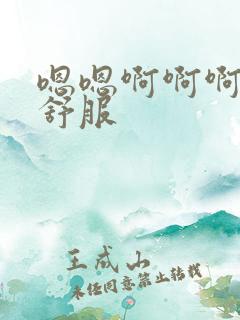 嗯嗯啊啊啊
舒服
王成山
未经同意禁止转载